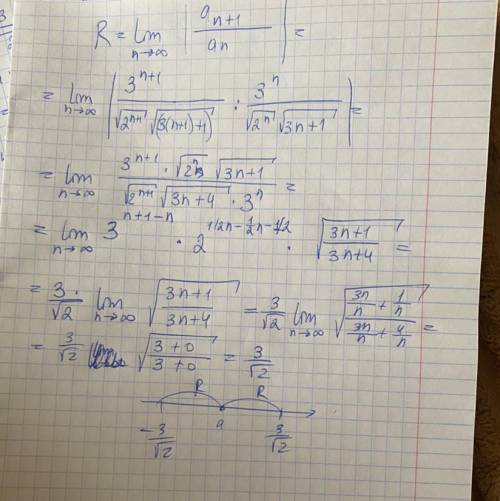 R = lim n→∞ | a n+1 / an | =
= lim n→∞ | 3^(n+1) / (√(2^(n+1)) √(3(n+1)+1)) : 3^n / (√(2^n) √(3n+1)) | =
= lim n→∞ (3^(n+1) · √(2^n) √(3n+1)) / (√(2^(n+1)) √(3n+4) · 3^n) =
= lim n→∞ 3^(n+1-n) · 2^(1/2n-1/2n-1/2) · √((3n+1)/(3n+4)) =
= 3/√2 · lim n→∞ √((3n+1)/(3n+4)) = 3/√2 lim n→∞ √((3n/n + 1/n)/(3n/n + 4/n)) =
= 3/√2 √((3+0)/(3+0)) = 3/√2
R R
-3/√2 a 3/√2